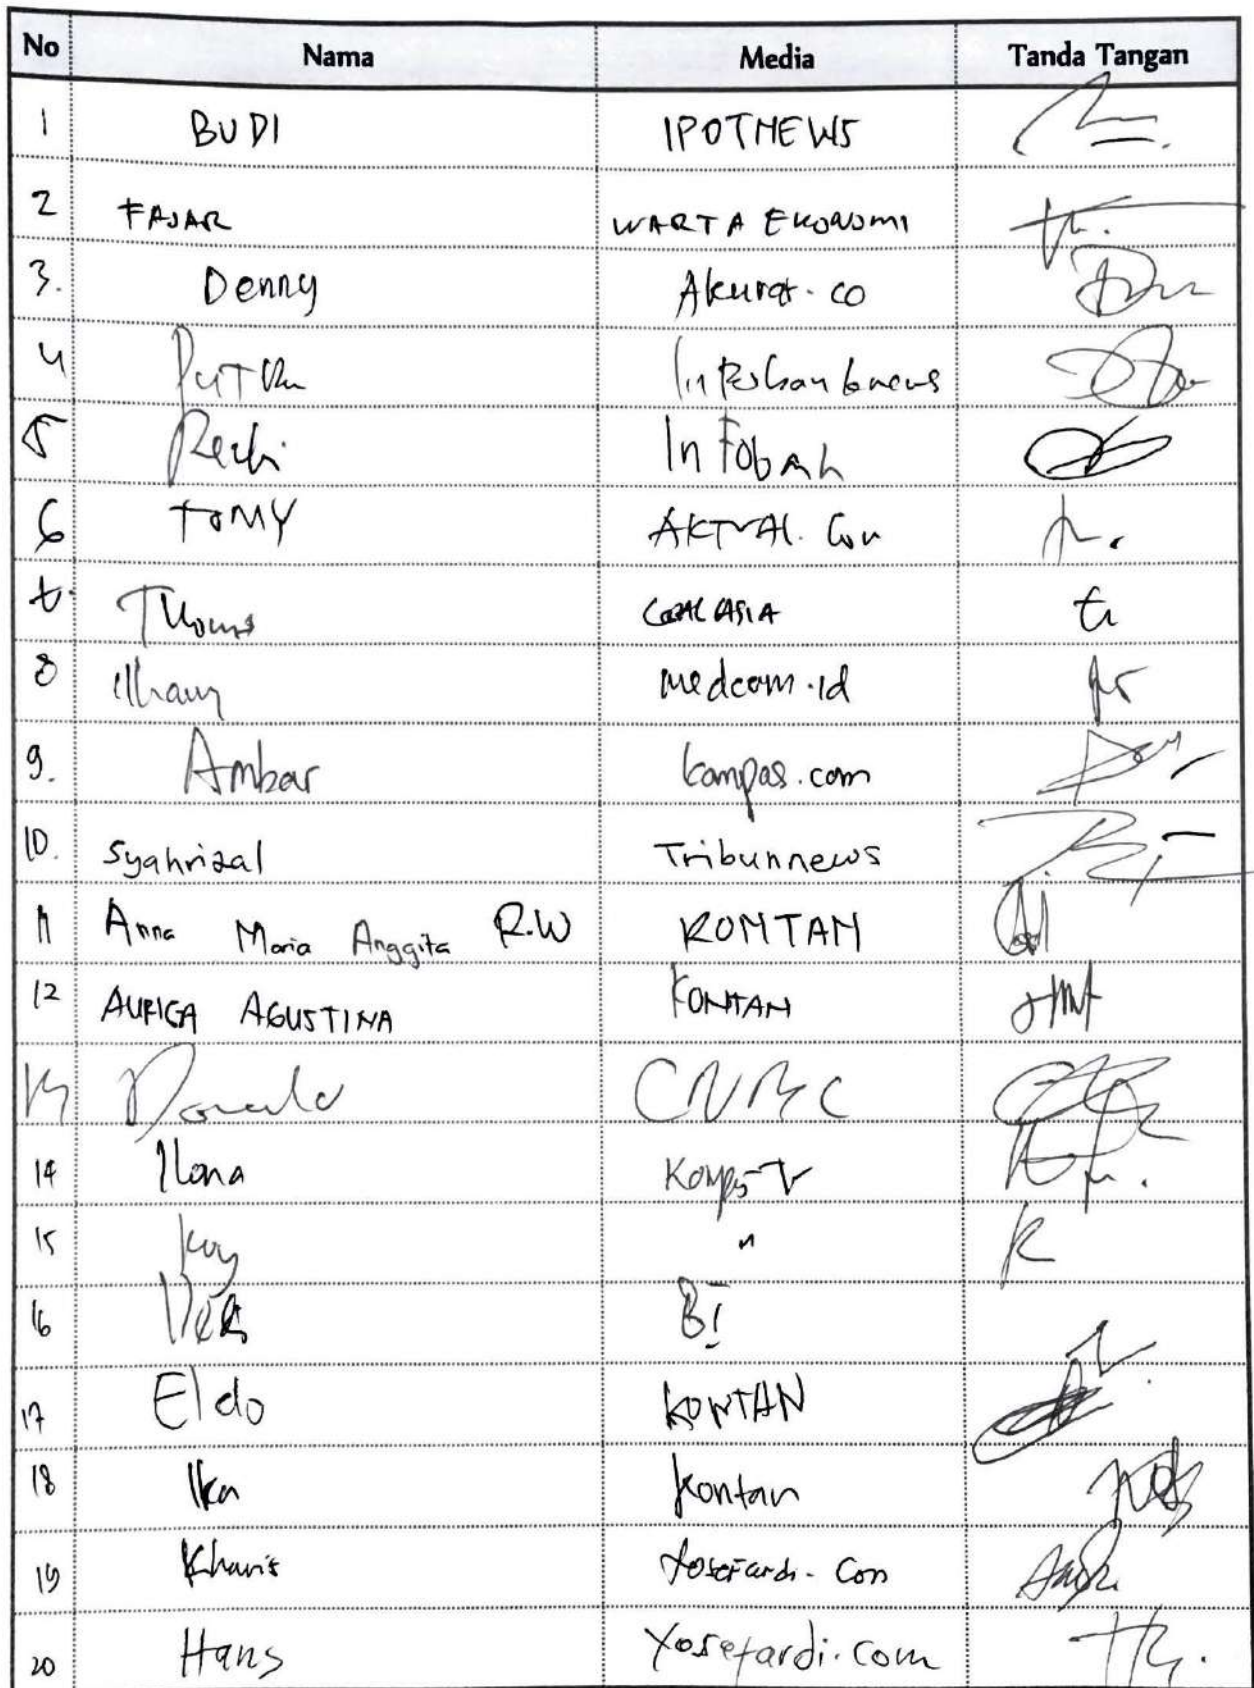 No Nama Media Tanda Tangan
1 BUDI IPOTNEWS
2 FAJAR WARTA EKONOMI
3. Denny Akurat.co
4
5 Infobank
6 TOMY AKTUAL.Com
7. Thomas COALASIA
8 Ilham medcom.id
9. Ambar kompas.com
10. Syahrizal Tribunnews
11 Anna Maria Anggita R.W KONTAN
12 AURIGA AGUSTINA KONTAN
13 Donald CNBC
14 Ilona
15 "
16 BI
17 Eldo KONTAN
18 Ika Kontan
19 Kharis Yosefardi.Com
20 Hans Yosefardi.com